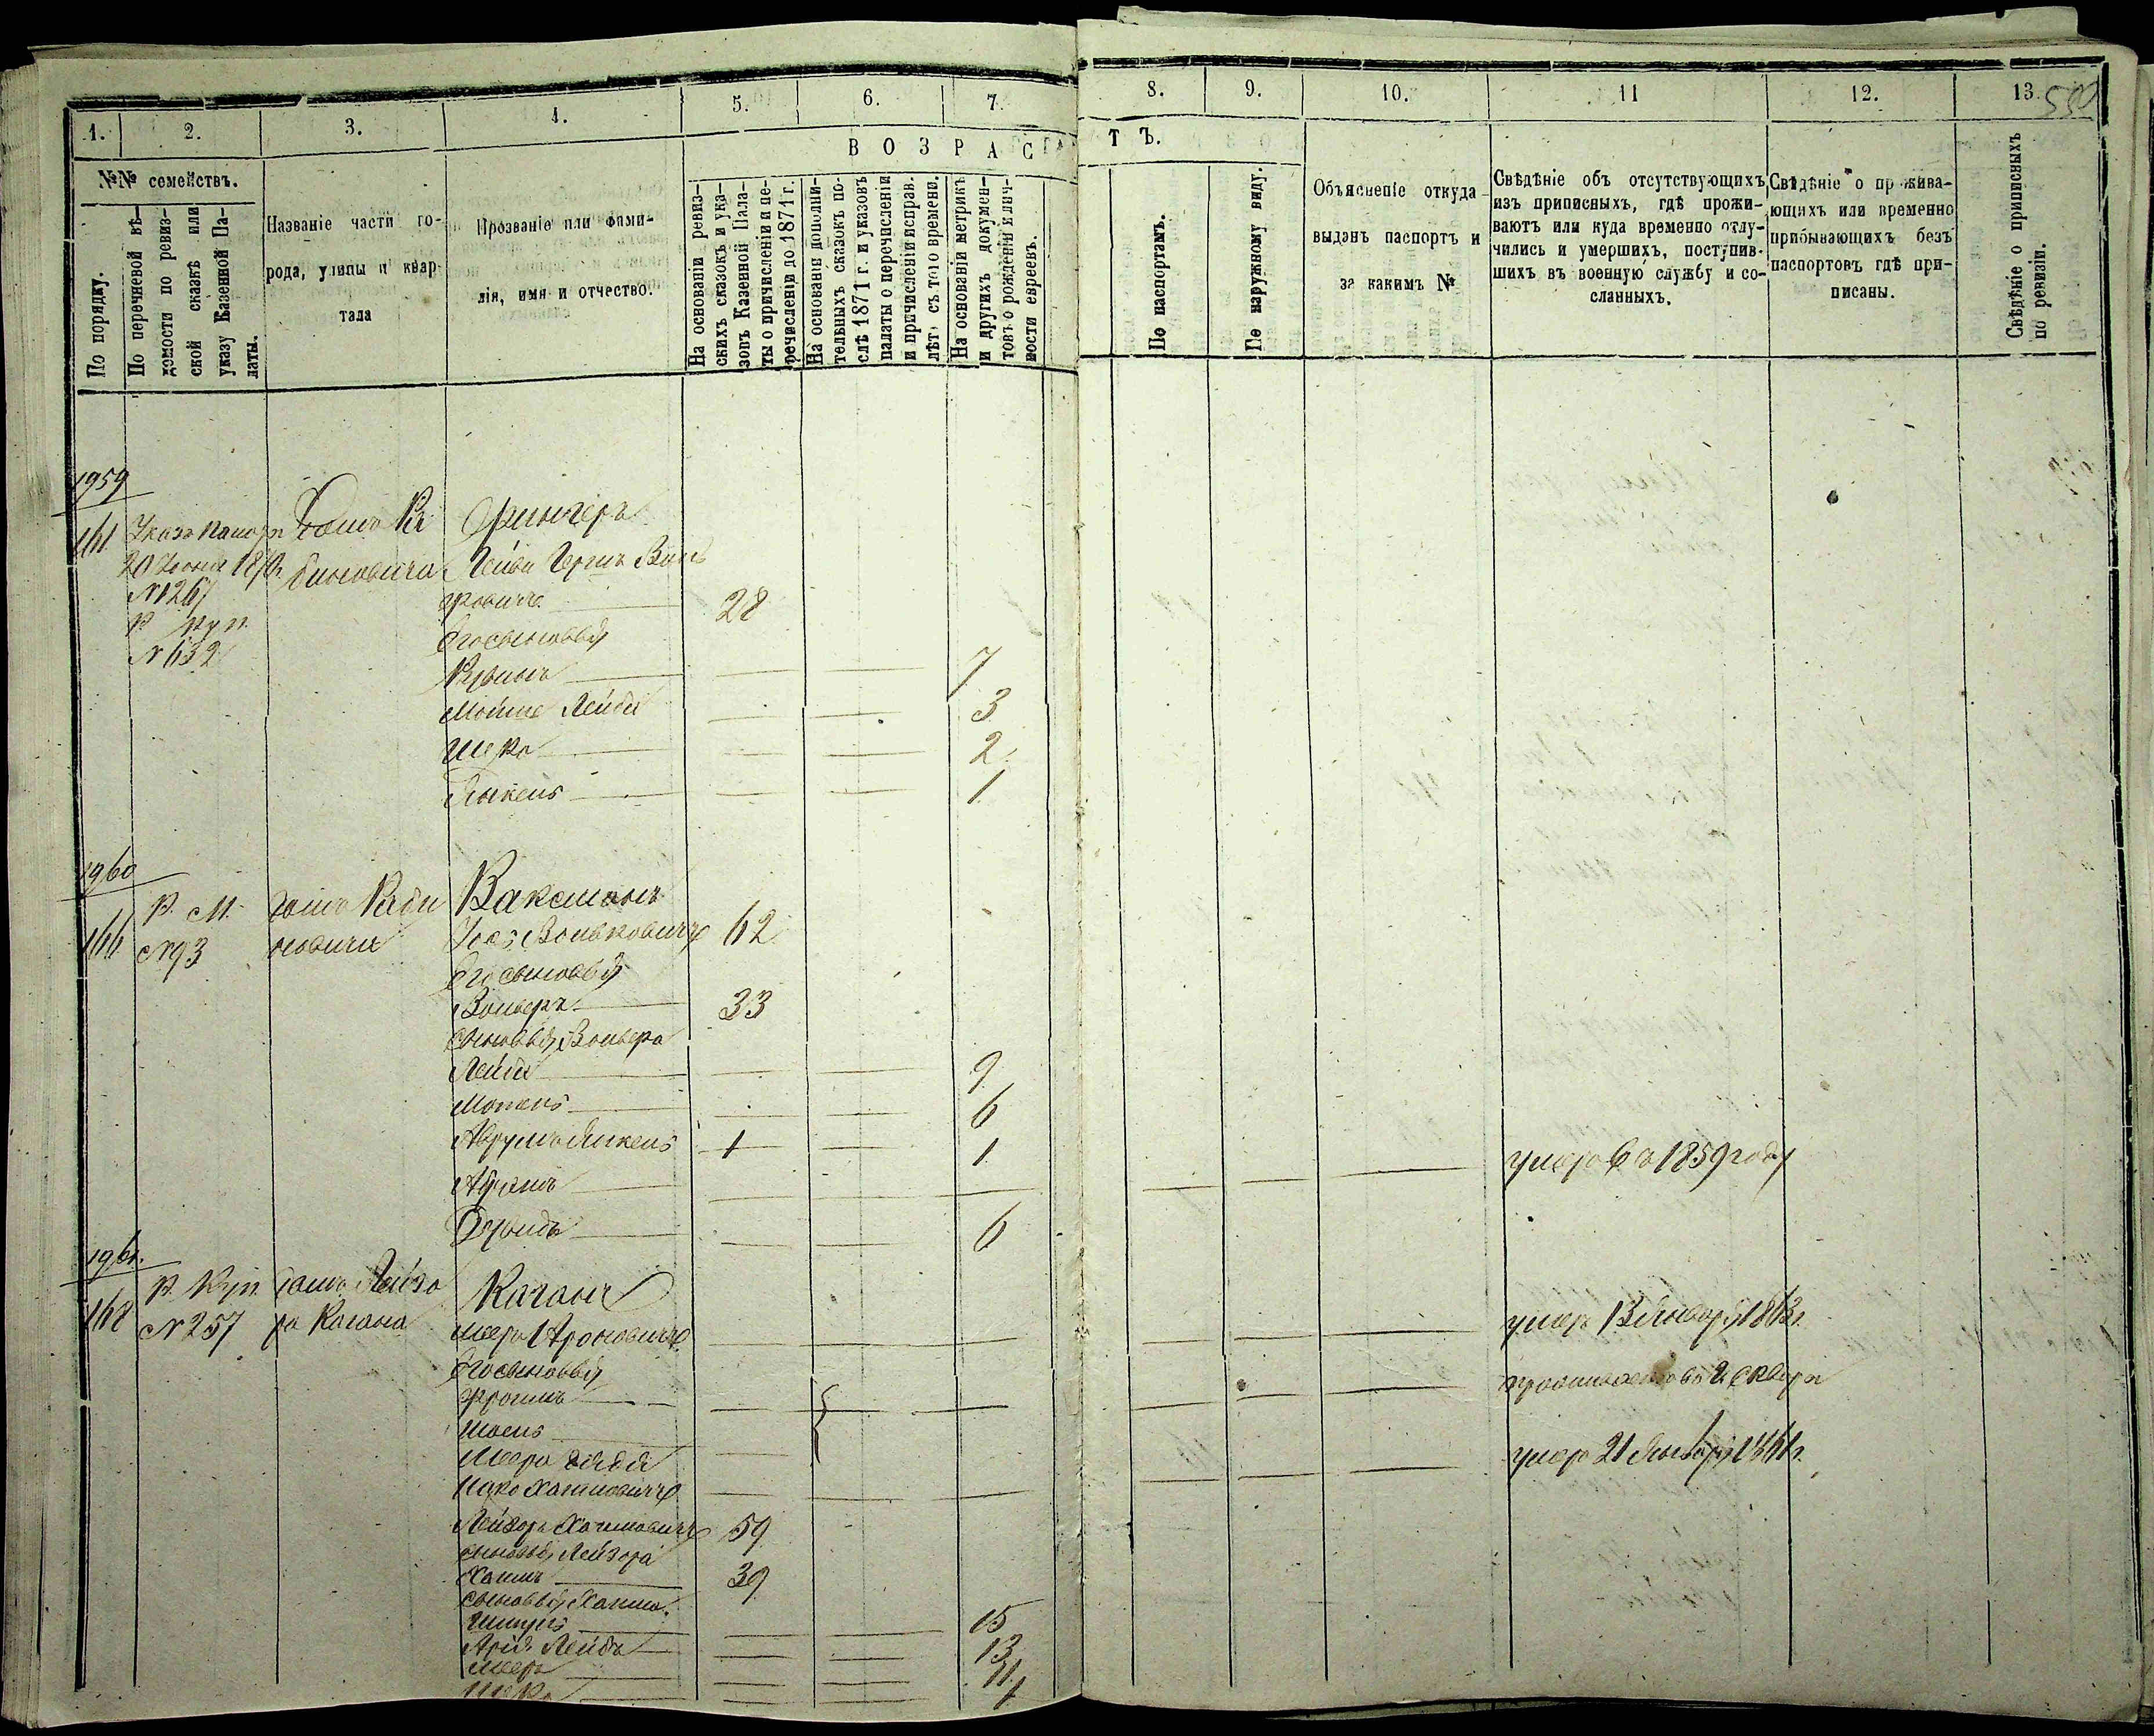 1. 2. 3. 4. 5. 6. 7. 8. 9. 10. 11 12. 13.
ВОЗРАСТЪ.
№№ семействъ.
По порядку.
По перечневой вѣ-
домости по ревиз-
ской сказкѣ или
указу Казенной Па-
латы.
Названіе части го-
рода, улицы и квар-
тала
Прозваніе или фами-
лія, имя и отчество.
На основаніи ревиз-
скихъ сказокъ и ука-
зовъ Казенной Пала-
ты о причисленіи и пе-
речисленіи до 1871 г.
На основаніи дополни-
тельныхъ сказокъ по-
слѣ 1871 г. и указовъ
палаты о перечисленіи
и причисленіи исправ.
лѣтъ съ того времени.
На основаніи метрикъ
и другихъ докумен-
товъ о рожденіи и лич-
ности евреевъ.
По паспортамъ.
По наружному виду.
Объясненіе откуда
выданъ паспортъ и
за какимъ №
Свѣдѣніе объ отсутствующихъ
изъ приписныхъ, гдѣ прожи-
ваютъ или куда временно отлу-
чились и умершихъ, поступив-
шихъ въ военную службу и со-
сланныхъ.
Свѣдѣніе о прожива-
ющихъ или временно
прибывающихъ безъ
паспортовъ гдѣ при-
писаны.
Свѣдѣніе о приписныхъ
по ревизіи.
1959
161
№126
Р. куп.
№632
Фингеръ
Лейба Гершъ Воль
фовичъ 28
Его сыновья
Рувинъ 7
Мойше Лейба 3
Шеко 2
Янкель 1
1960
166
Р. М.
№93
домъ Раби
новича
Ваксманъ
Вольковичъ 62
Его сыновья
Вольфъ 33
сыновья Вольфа
Лейба 9
Мотель 6
Аврумъ Янкель 1 1
Абрамъ умеръ въ 1859 году
Давидъ 6
1961.
168
Р. куп.
№257
домъ Лейзо
ра Кагана
Каганъ
Мееръ Ароновичъ умеръ 13 Января 1863 г.
Его сыновья
Фроимъ
Мееръ дядя
Хаимовичъ умеръ 21 Января
Лейзоръ Хаимовичъ 59
сыновья Лейзора
Хаимъ 39
сыновья Хаима.
15
Арія Лейба 13
Мееръ 11